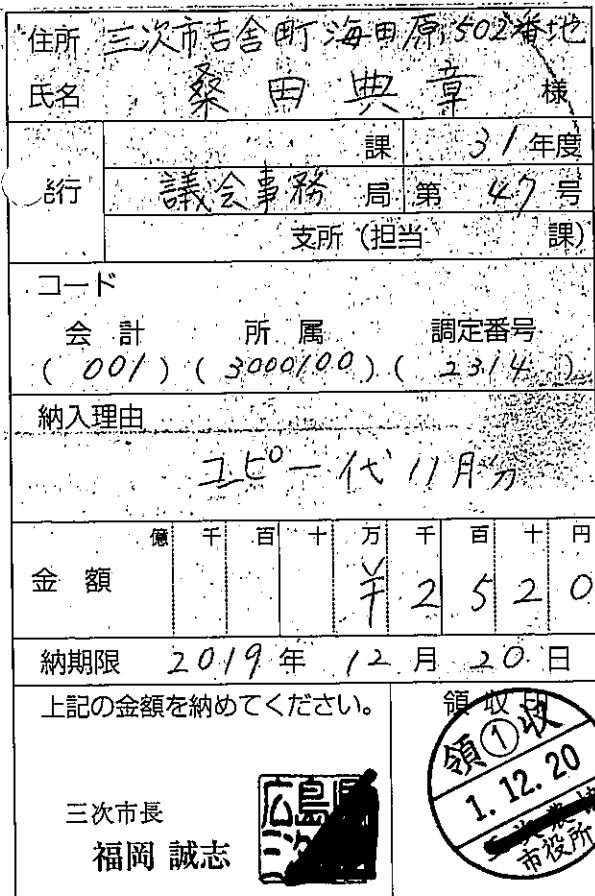 住所 三次市吉舎町海田原502番地
氏名 桑田典章 様
課 31年度
発行 議会事務局 第47号
支所（担当 課）
コード
会計 所属 調定番号
（001）（3000100）（2314）
納入理由
コピー代11月分
億 千 百 十 万 千 百 十 円
金額 ¥2520
納期限 2019年12月20日
上記の金額を納めてください。
領収印
領①収
1.12.20
市役所
三次市長
福岡 誠志
広島県
三次